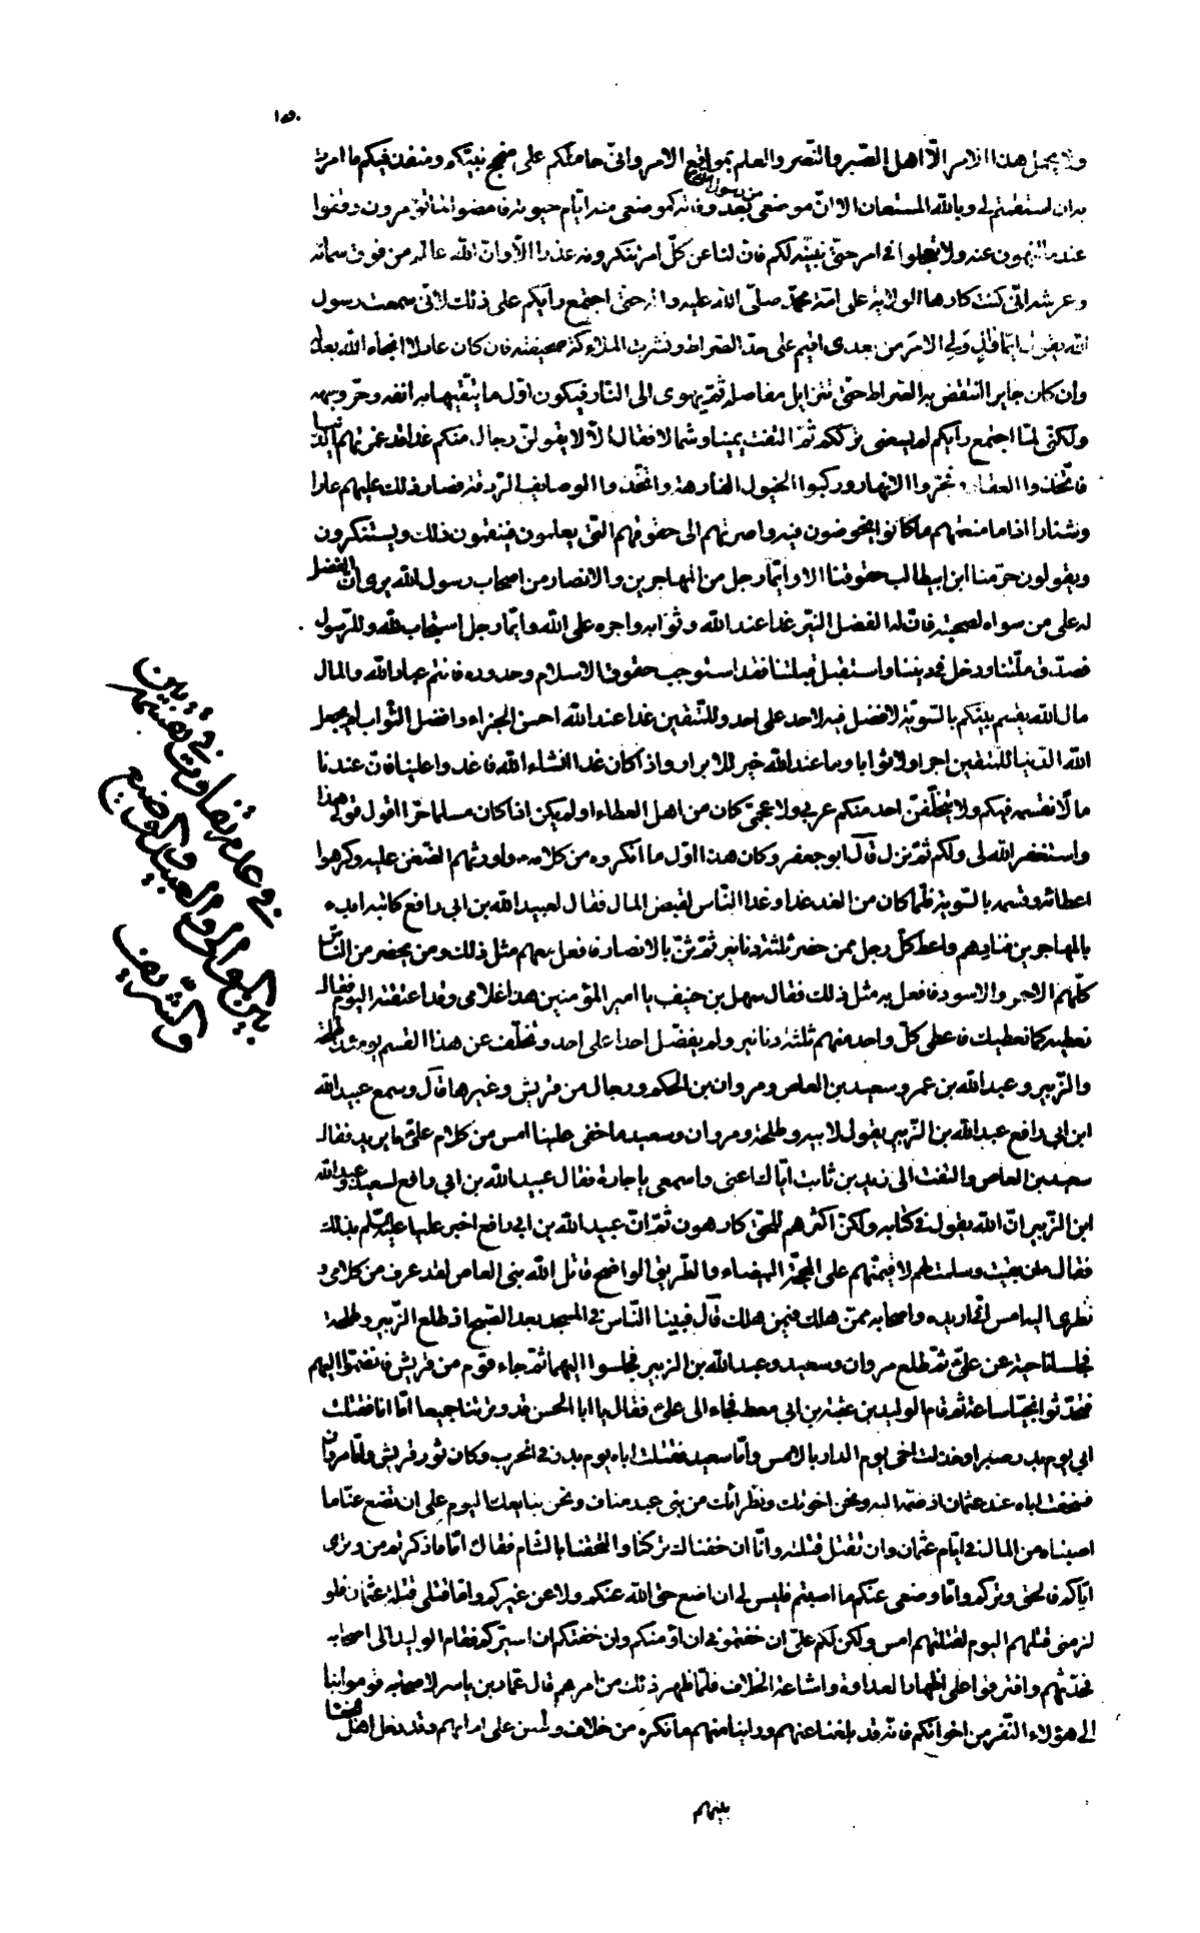 ١٥٠
ولا يحمل هذا الامر الّا اهل الصّبر والنّصر والعلم بمواقع الامر وانّى حاملكم على منهج نبيّكم ومنفذ فيكم ما امرت
به ان استقمتم لى وبالله المستعان الا انّ موضعى من رسول الله بعد وفاته كموضعى منه ايّام حيوته فامضوا لما تؤمرون وقفوا
عند ما تنهون عنه ولا تعجلوا فى امر حتّى نبيّنه لكم فانّ لنا عن كلّ امر تنكرونه عذرا الا وانّ الله عالم من فوق سمائه
وعرشه انّى كنت كارها للولاية على امّة محمّد صلّى الله عليه واله حتّى اجتمع رأيكم على ذلك لانّى سمعت رسول
الله يقول ايّما وال ولى الامر من بعدى اقيم على حدّ الصراط ونشرت الملائكة صحيفته فان كان عادلا انجاه الله بعدله
وان كان جايرا انتقض به الصراط حتّى تتزايل مفاصله ثمّ يهوى الى النّار فيكون اوّل ما يتّقيها به انفه وحرّ وجهه
ولكنّى لمّا اجتمع رأيكم لم يسعنى ترككم ثمّ التفت يمينا وشمالا فقال الا لا يقولنّ رجال منكم غدا قد غمرتهم الدّنيا
فاتّخذوا العقار وفجّروا الانهار وركبوا الخيول الفارهة واتّخذوا الوصايف الرّوقة فصار ذلك عليهم عارا
وشنارا اذا ما منعتهم ما كانوا يخوضون فيه واصرتهم الى حقوقهم التّى يعلمون فينقمون ذلك ويستنكرون
ويقولون حرّمنا ابن ابيطالب حقوقنا الا وايّما رجل من المهاجرين والانصار من اصحاب رسول الله يرى انّ الفضل
له على من سواه لصحبته فانّ له الفضل النيّر غدا عند الله وثوابه واجره على الله وايّما رجل استجاب لله وللرّسول
فصدّق ملّتنا ودخل فى ديننا واستقبل قبلتنا فقد استوجب حقوق الاسلام وحدوده فانتم عباد الله والمال
مال الله يقسم بينكم بالسّويّة لا فضل فيه لاحد على احد وللمتّقين غدا عند الله احسن الجزاء وافضل الثّواب لم يجعل
الله الدّنيا للمتّقين اجرا ولا ثوابا وما عند الله خير للابرار واذا كان غدا انشاء الله فاغدوا علينا فانّ عندنا
مالا نقسمه فيكم ولا يتخلّفنّ احد منكم عربى ولا عجمىّ كان من اهل العطاء او لم يكن اذا كان مسلما حرّا اقول قولى هذا
واستغفر الله لى ولكم ثمّ نزل قال ابو جعفر وكان هذا اوّل ما انكروه من كلامه واورثهم الضّغن عليه وكرهوا
اعطائه وقسمه بالسّويّة فلمّا كان من الغد غدا وغدا النّاس لقبض المال فقال لعبيد الله بن ابى رافع كاتبه ابدء
بالمهاجرين فنادهم واعط كلّ رجل ممن حضر ثلثة دنانير ثمّ ثنّ بالانصار فافعل معهم مثل ذلك ومن يحضر من النّاس
كلّهم الاحمر والاسود فافعل به مثل ذلك فقال سهل بن حنيف يا امير المؤمنين هذا غلامى وقد اعتقته اليوم فقال
نعطيه كما نعطيك فاعطى كلّ واحد منهم ثلثة دنانير ولم يفضّل احدا على احد وتخلّف عن هذا القسم يومئذ طلحة
والزّبير وعبد الله بن عمر وسعيد بن العاص ومروان بن الحكم ورجال من قريش وغيرها قال وسمع عبيد الله
ابن ابى رافع عبد الله بن الزّبير يقول لابيه وطلحة ومروان وسعيد ما خفى علينا امس من كلام علىّ ما يريد فقال
سعيد بن العاص والتفت الى زيد بن ثابت ايّاك اعنى واسمعى يا جارة فقال عبيد الله بن ابى رافع لسعيد وعبد الله
ابن الزّبير انّ الله يقول فى كتابه ولكنّ اكثرهم للحقّ كارهون ثمّ انّ عبيد الله بن ابى رافع اخبر عليا عليه السّلم بذلك
فقال لئن بقيت وسلمت لهم لاقيمنّهم على المحجّة البيضاء والطّريق الواضح قاتل الله بنى العاص لقد عرف من كلامى و
نظرى اليه امس انّى اريده واصحابه ممّن هلك فيمن هلك قال فبينا النّاس فى المسجد بعد الصّبح اذ طلع الزّبير وطلحة
فجلسا ناحية عن علىّ ثمّ طلع مروان وسعيد وعبد الله بن الزبير فجلسوا اليهما ثمّ جاء قوم من قريش فانضمّوا اليهم
فتحدّثوا نجيّا ساعة ثمّ قام الوليد بن عقبة بن ابى معيط فجاء الى علىّ فقال يا ابا الحسن قد وترتنا جميعا امّا انا فقتلت
ابى يوم بدر صبرا وخذلت اخى يوم الدار بالامس وامّا سعيد فقتلت اباه يوم بدر فى الحرب وكان ثور قريش وامّا مروان
فسخفت اباه عند عثمان اذ ضمّه اليه ونحن اخوتك ونظرائك من بنى عبد مناف ونحن نبايعك اليوم على ان تضع عنّا ما
اصبناه من المال فى ايّام عثمان وان تقتل قتلته وانّا ان خفناك تركناك والتحقنا بالشّام فقال امّا ما ذكرتم من وترى
ايّاكم فالحقّ وتركم وامّا وضعى عنكم ما اصبتم فليس لى ان اضع حقّ الله عنكم ولا عن غيركم وامّا قتلى قتلة عثمان فلو
لزمنى قتلهم اليوم لقتلتهم امس ولكن لكم علىّ ان خفتمونى ان اؤمنكم وان خفتكم ان اسيّركم فقام الوليد الى اصحابه
فحدّثهم وافترقوا على اظهار العداوة واشاعة الخلاف فلمّا ظهر ذلك من امرهم قال عمّار بن ياسر لاصحابه قوموا بنا
الى هؤلاء النّفر من اخوانكم فانّه قد بلغنا عنهم ورأينا منهم ما نكره من خلاف والطعن على امامهم وقد دخل اهل الجفا
بينهم
فى عدم تفاوت قسمته بين
بين الموالى والعبيد والوضيع
والشّريف